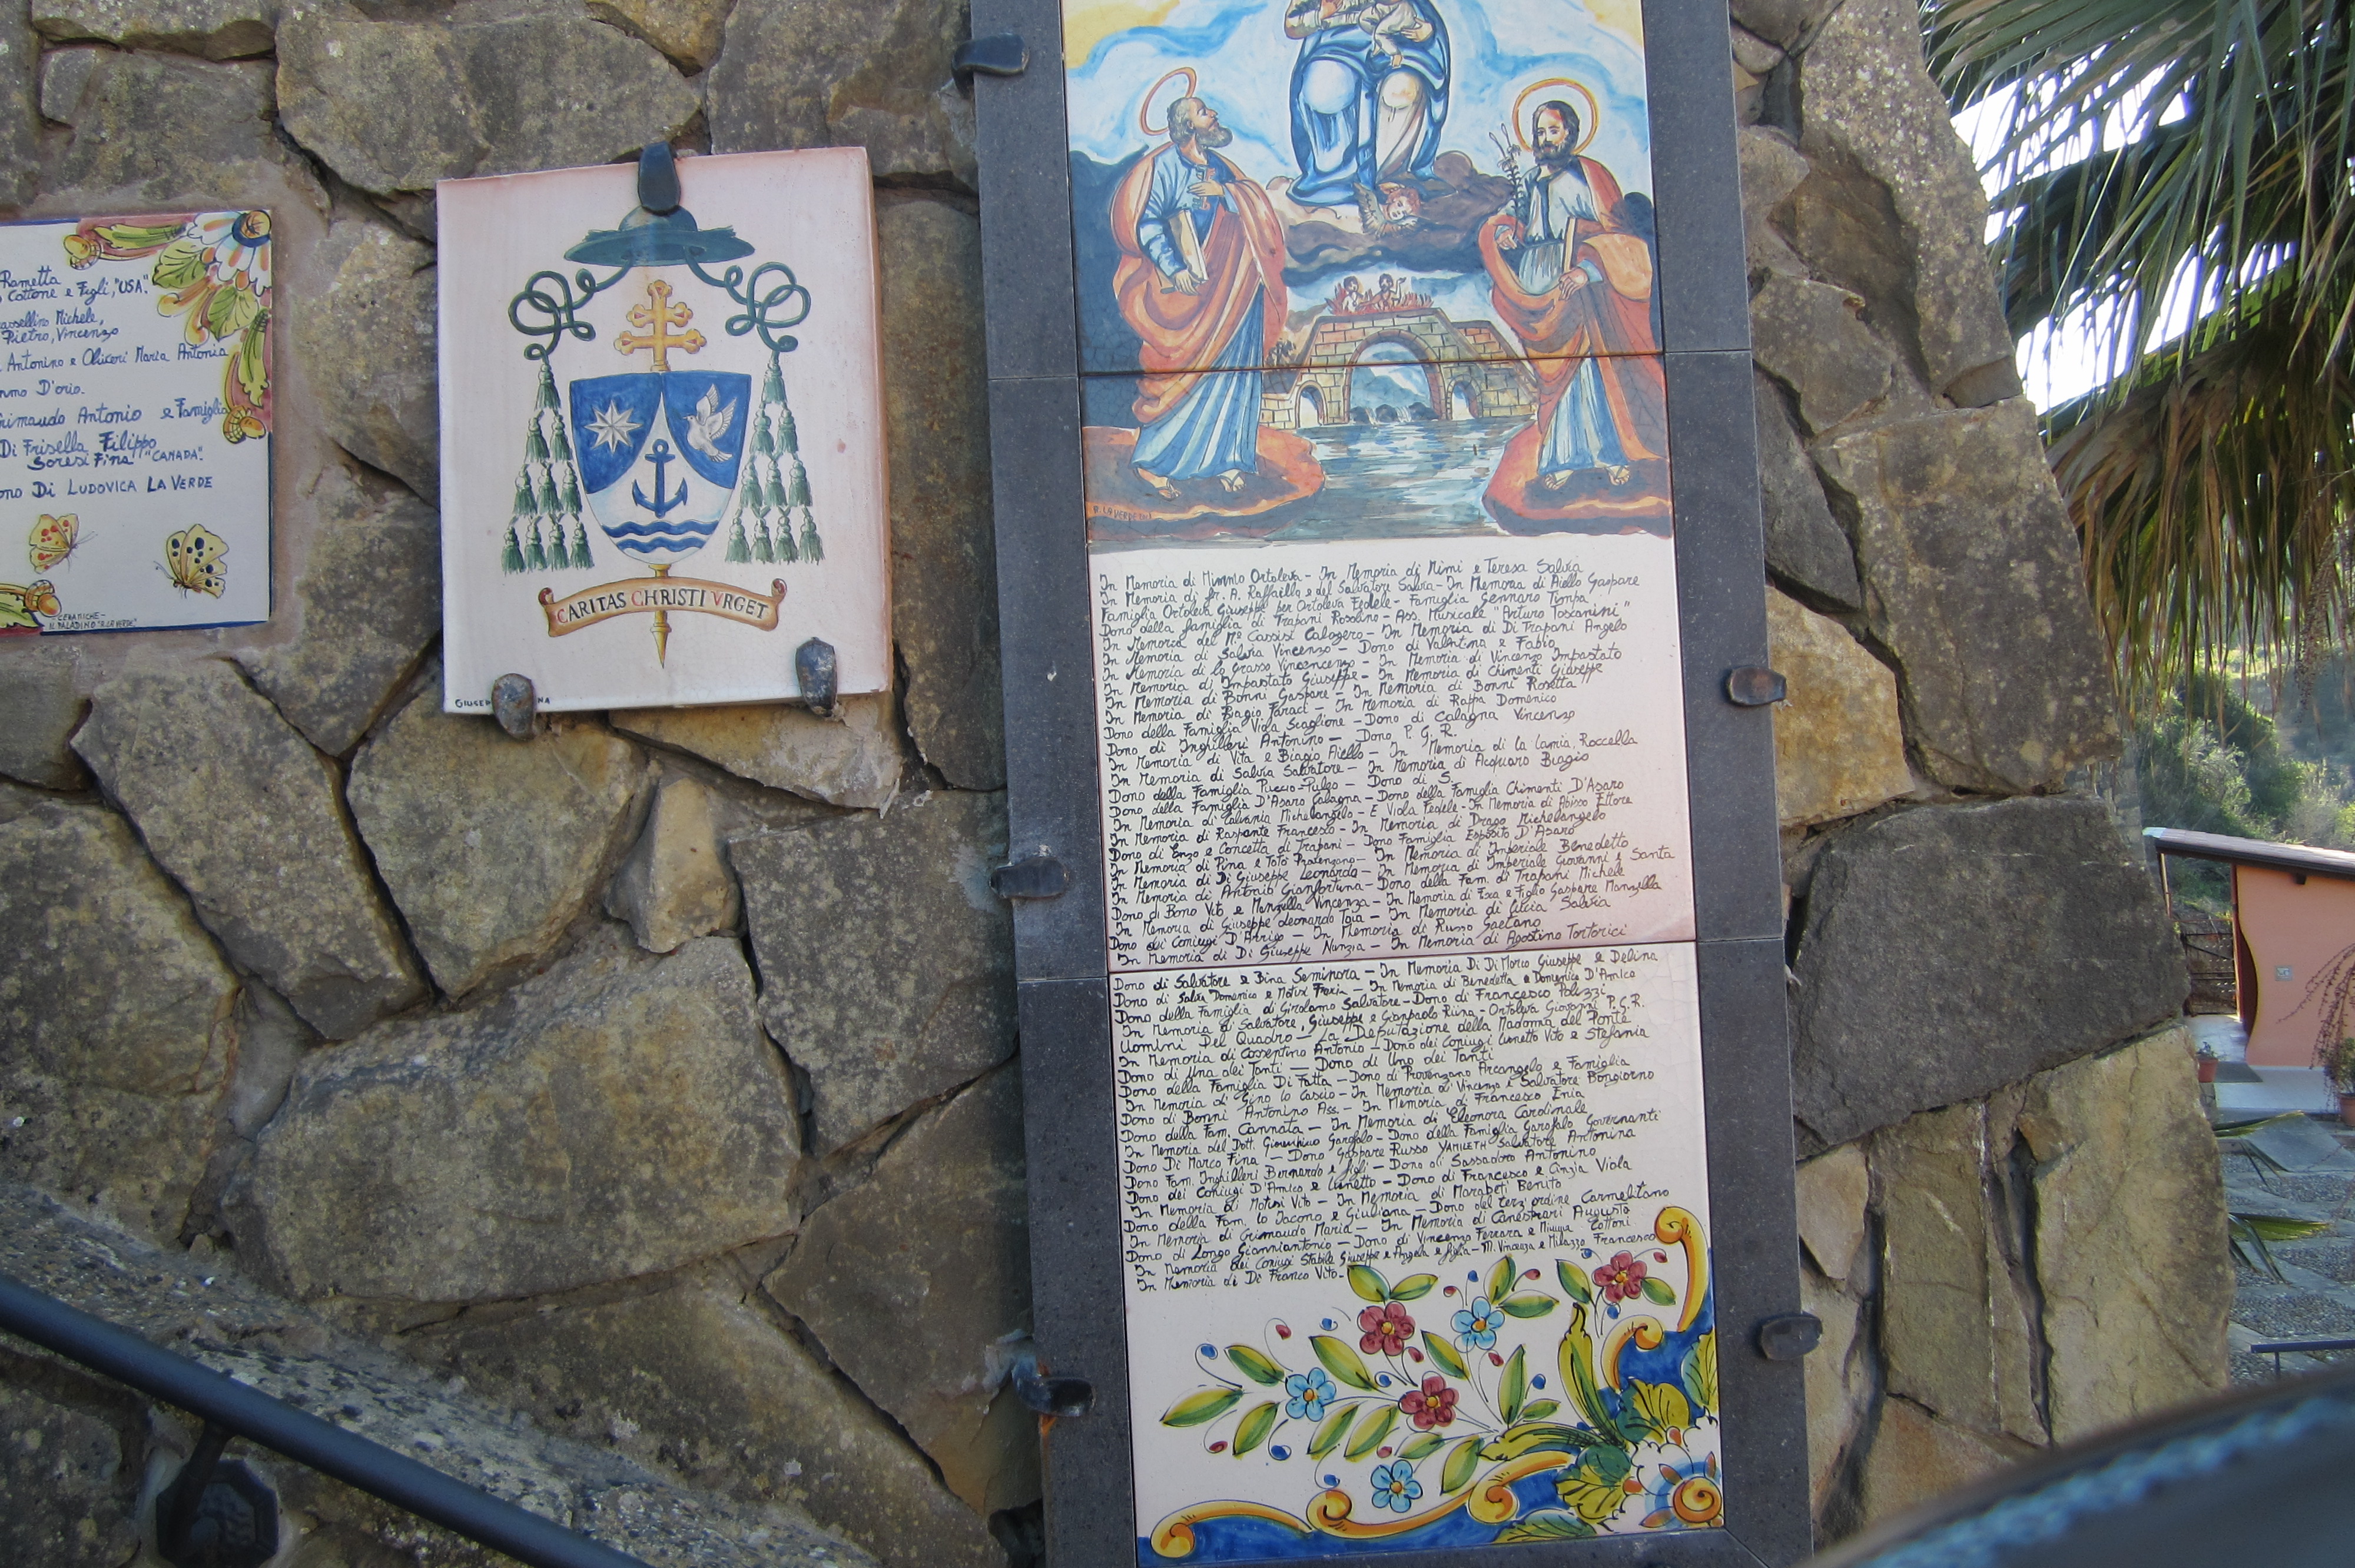 Rametta
Cottone e Figli, "USA".
Michele,
Pietro, Vincenzo
Antonino e Oliveri Maria Antonia
D'orio.
Grimaudo Antonio e Famiglia
Di Frisella Filippo
Soresi Fina "CANADA".
Di LUDOVICA LA VERDE
CERAMICHE
IL PALADINO "R. LA VERDE"
CARITAS CHRISTI VRGET
R. LA VERDE
In Memoria di Mimmo Ortoleva - In Memoria di Mimì e Teresa Salvia
In Memoria di Dr. A. Raffaello e del Salvatore Salvia - In Memoria di Aiello Gaspare
Famiglia Ortoleva Giuseppe per Ortoleva Fedele - Famiglia Gennaro Timpa
Dono della famiglia di Trapani Rosolino - Ass. Musicale "Arturo Toscanini"
In Memoria del M° Cassisi Calogero - In Memoria di Di Trapani Angelo
In Memoria di Salvia Vincenzo - Dono di Valentina e Fabio
In Memoria di lo Grasso - In Memoria di Vincenzo Impastato
In Memoria di Impastato Giuseppe - In Memoria di Chimenti Giuseppe
In Memoria di Bonnì Gaspare - In Memoria di Bonnì Rosetta
In Memoria di Biagio Faraci - In Memoria di Rappa Domenico
Dono della Famiglia Viola Scaglione - Dono di Calagna Vincenzo
Dono di Inghilleri Antonino - Dono P. G. R.
In Memoria di Vita e Biagio Aiello - In Memoria di la Lamia Roccella
In Memoria di Salvia Salvatore - In Memoria di Acquaro Biagio
Dono della Famiglia Puccio-Puleo - Dono di S.
Dono della Famiglia D'Asaro Calagna - Dono della Famiglia Chimenti D'Asaro
In Memoria di Calvania Michelangelo - E Viola Fedele - In Memoria di Abisso Ettore
In Memoria di Raspante Francesco - In Memoria di Drago Michelangelo
Dono di Enzo e Concetta di Trapani - Dono Famiglia Esposito D'Asaro
In Memoria di Pina e Totò Provenzano - In Memoria di Imperiale Benedetto
In Memoria di Di Giuseppe Leonardo - In Memoria di Imperiale Giovanni e Santa
In Memoria di Antonio Gianfortuna - Dono della Fam. di Trapani Michele
Dono di Bono Vito e Manzella Vincenza - In Memoria di Exa e Figlio Gaspare Manzella
In Memoria di Giuseppe Leonardo Toia - In Memoria di Liccia Salvia
Dono dei Coniugi D'Arrigo - In Memoria di Russo Gaetano
In Memoria di Di Giuseppe Nunzia - In Memoria di Agostino Tortorici
Dono di Salvatore e Bina Seminora - In Memoria Di Di Marco Giuseppe e Delina
Dono di Salvia Domenico e - In Memoria di Benedetta e Domenico D'Amico
Dono della Famiglia di Girolamo Salvatore - Dono di Francesco Polizzi
In Memoria di Salvatore, Giuseppe e Gianpaolo Riina - Ortoleva Giovanni P.G.R.
Uomini Del Quadro - La Deputazione della Madonna del Ponte
In Memoria di Cossentino Antonio - Dono dei Coniugi Lunetto Vito e Stefania
Dono di Una dei Tanti - Dono di Uno dei Tanti
Dono della Famiglia Di Fatta - Dono di Provenzano Arcangelo e Famiglia
In Memoria di Gino lo Cascio - In Memoria di Vincenzo e Salvatore Bongiorno
Dono di Bonnì Antonino Ass. - In Memoria di Francesco Enia
Dono della Fam. Cannata - In Memoria di Eleonora Cardinale
In Memoria del Dott. Garofalo - Dono della Famiglia Garofalo Governanti
Dono Di Marco Fina - Dono Gaspare Russo YAMILETH Salvatore Antonina
Dono Fam. Inghilleri Bernardo e figli - Dono di Sassadoro Antonino
Dono dei Coniugi D'Amico e Lunetto - Dono di Francesco e Cinzia Viola
In Memoria di Motisi Vito - In Memoria di Marabeti Benito
Dono della Fam. lo Iacono e Giuliana - Dono del terz'ordine Carmelitano
In Memoria di Grimaudo Maria - In Memoria di Canestrari Augusto
Dono di Longo Gianniantonio - Dono di Vincenzo Ferrara e Cottoni
In Memoria dei Coniugi Stabile Giuseppe e Angela e figlia - M. Vincenza e Milazzo Francesco
In Memoria di Di Franco Vito -